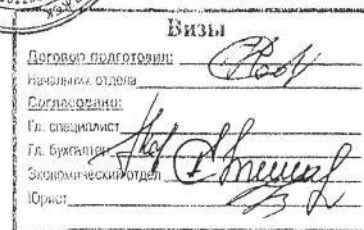 Визы
Договор подготовил:
Начальник отдела
Согласовано:
Гл. специалист
Гл. бухгалтер
Экономический отдел
Юрист